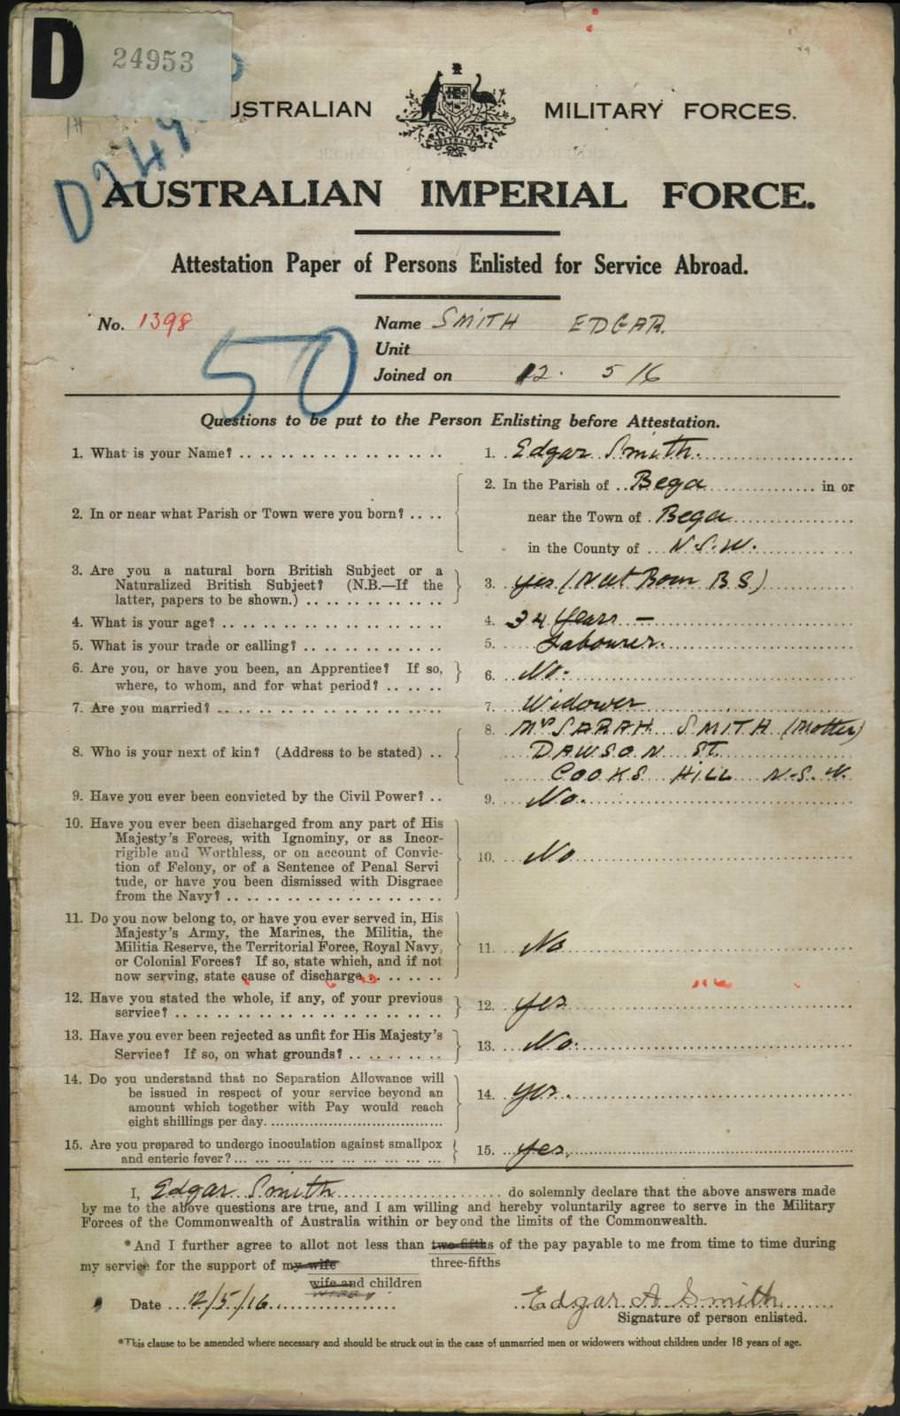 D 24953
AUSTRALIAN MILITARY FORCES.
AUSTRALIAN IMPERIAL FORCE.
Attestation Paper of Persons Enlisted for Service Abroad.
No. 1398 Name SMITH EDGAR.
50
Unit
Joined on 12. 5 16
Questions to be put to the Person Enlisting before Attestation.
1. What is your Name? 1. Edgar Smith.
2. In or near what Parish or Town were you born? 2. In the Parish of Bega in or
near the Town of Bega
in the County of N.S.W.
3. Are you a natural born British Subject or a
Naturalized British Subject? (N.B.—If the 3. yes (Nat Born B S)
latter, papers to be shown.)
4. What is your age? 4. 34 years —
5. What is your trade or calling? 5. Labourer.
6. Are you, or have you been, an Apprentice? If so, 6. No.
where, to whom, and for what period?
7. Are you married? 7. Widower
8. Who is your next of kin? (Address to be stated) 8. Mrs SARAH SMITH (Mother)
DAWSON ST.
COOKS HILL N.S.W.
9. Have you ever been convicted by the Civil Power? 9. No.
10. Have you ever been discharged from any part of His
Majesty's Forces, with Ignominy, or as Incor-
rigible and Worthless, or on account of Convic- 10. No
tion of Felony, or of a Sentence of Penal Servi
tude, or have you been dismissed with Disgrace
from the Navy?
11. Do you now belong to, or have you ever served in, His
Majesty's Army, the Marines, the Militia, the
Militia Reserve, the Territorial Force, Royal Navy, 11. No
or Colonial Forces? If so, state which, and if not
now serving, state cause of discharge
12. Have you stated the whole, if any, of your previous 12. yes
service?
13. Have you ever been rejected as unfit for His Majesty's 13. No.
Service? If so, on what grounds?
14. Do you understand that no Separation Allowance will
be issued in respect of your service beyond an 14. yes.
amount which together with Pay would reach
eight shillings per day.
15. Are you prepared to undergo inoculation against smallpox 15. yes.
and enteric fever?
I, Edgar Smith do solemnly declare that the above answers made
by me to the above questions are true, and I am willing and hereby voluntarily agree to serve in the Military
Forces of the Commonwealth of Australia within or beyond the limits of the Commonwealth.
*And I further agree to allot not less than two-fifths of the pay payable to me from time to time during
three-fifths
my service for the support of my wife
wife and children
Date 12/5/16. Edgar A Smith
Signature of person enlisted.
*This clause to be amended where necessary and should be struck out in the case of unmarried men or widowers without children under 18 years of age.